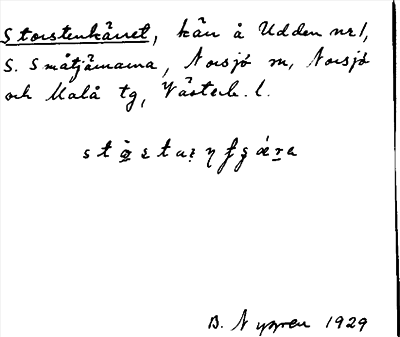 Storstenkärret, kärr å Udden nr 1,
S. Småtjärnarna, Norsjö sn, Norsjö
och Malå tg, Västerb. l.
B. Nygren 1929